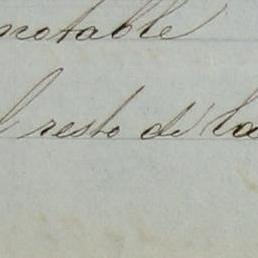 notable
l resto de la